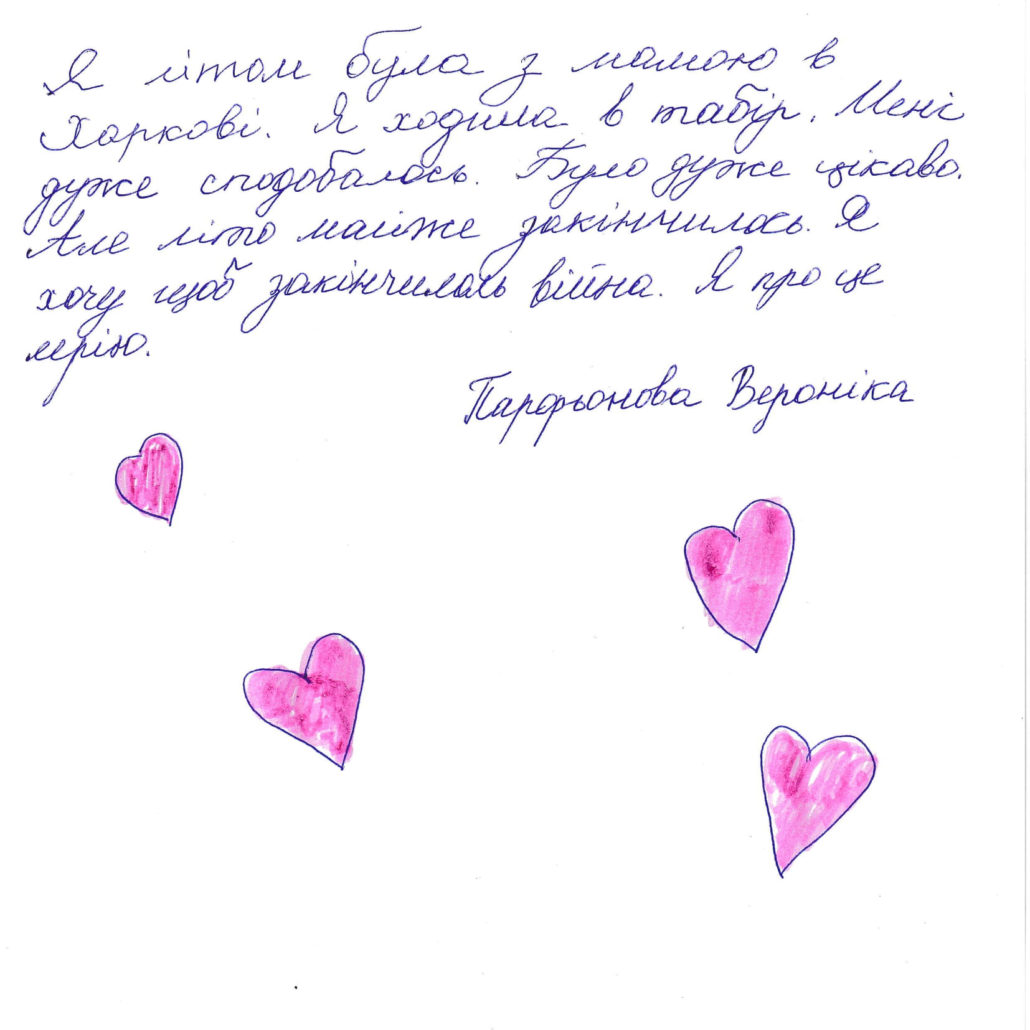 Я літом була з мамою в
Харкові. Я ходила в табір. Мені
дуже сподобалось. Було дуже цікаво.
Але літо майже закінчилось. Я
хочу щоб закінчилась війна. Я про це
мрію.
Парфьонова Вероніка